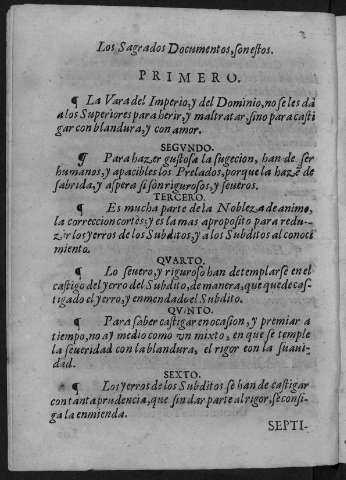 Los Sagrados Documentos, son estos.
PRIMERO.
¶ La Vara del Imperio, y del Dominio, no se les dà
a los Superiores para herir, y maltratar, sino para casti
gar con blandura, y con amor.
SEGVNDO.
¶ Para hazer gustosa la sugecion, han de ser
humanos, y apacibles los Prelados, porque la hazē de
sabrida, y aspera si son rigurosos, y seueros.
TERCERO.
¶ Es mucha parte de la Nobleza de animo,
la correccion cortès: y es la mas aproposito para redu-
zir los yerros de los Subditos, y a los Subditos al conoci
miento.
QVARTO.
¶ Lo seuero, y riguroso han de templarse en el
castigo del yerro del Subdito, de manera, que quede cas-
tigado el yerro, y enmendado el Subdito.
QVINTO.
¶ Para saber castigar en ocasion, y premiar a
tiempo, no ay medio como vn mixto, en que se temple
la seueridad con la blandura, el rigor con la suaui-
dad.
SEXTO.
¶ Los yerros de los Subditos se han de castigar
con tanta prudencia, que sin dar parte al rigor, se consi-
ga la enmienda.
SEPTI-